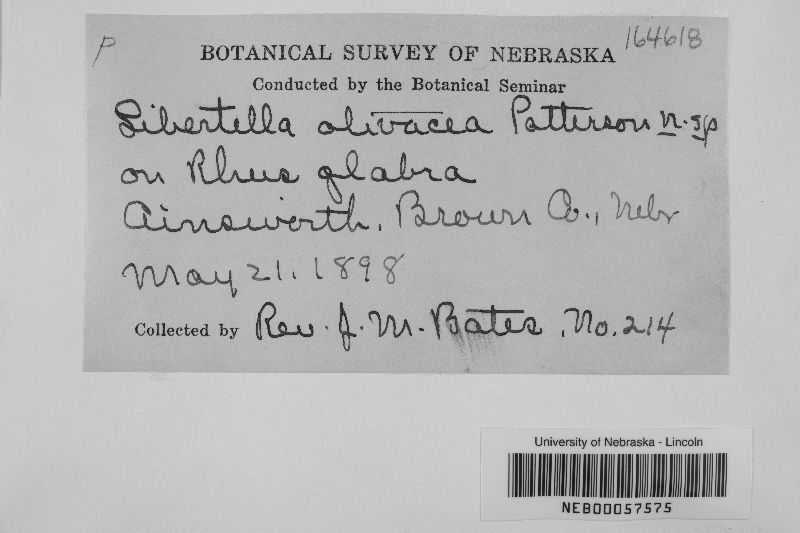 P
164618
BOTANICAL SURVEY OF NEBRASKA
Conducted by the Botanical Seminar
Libertella olivacea Patterson n. sp
on Rhus glabra
Ainsworth, Brown Co., Nebr
May 21. 1898
Collected by Rev. J. M. Bates, No. 214
University of Nebraska - Lincoln
NEB00057575